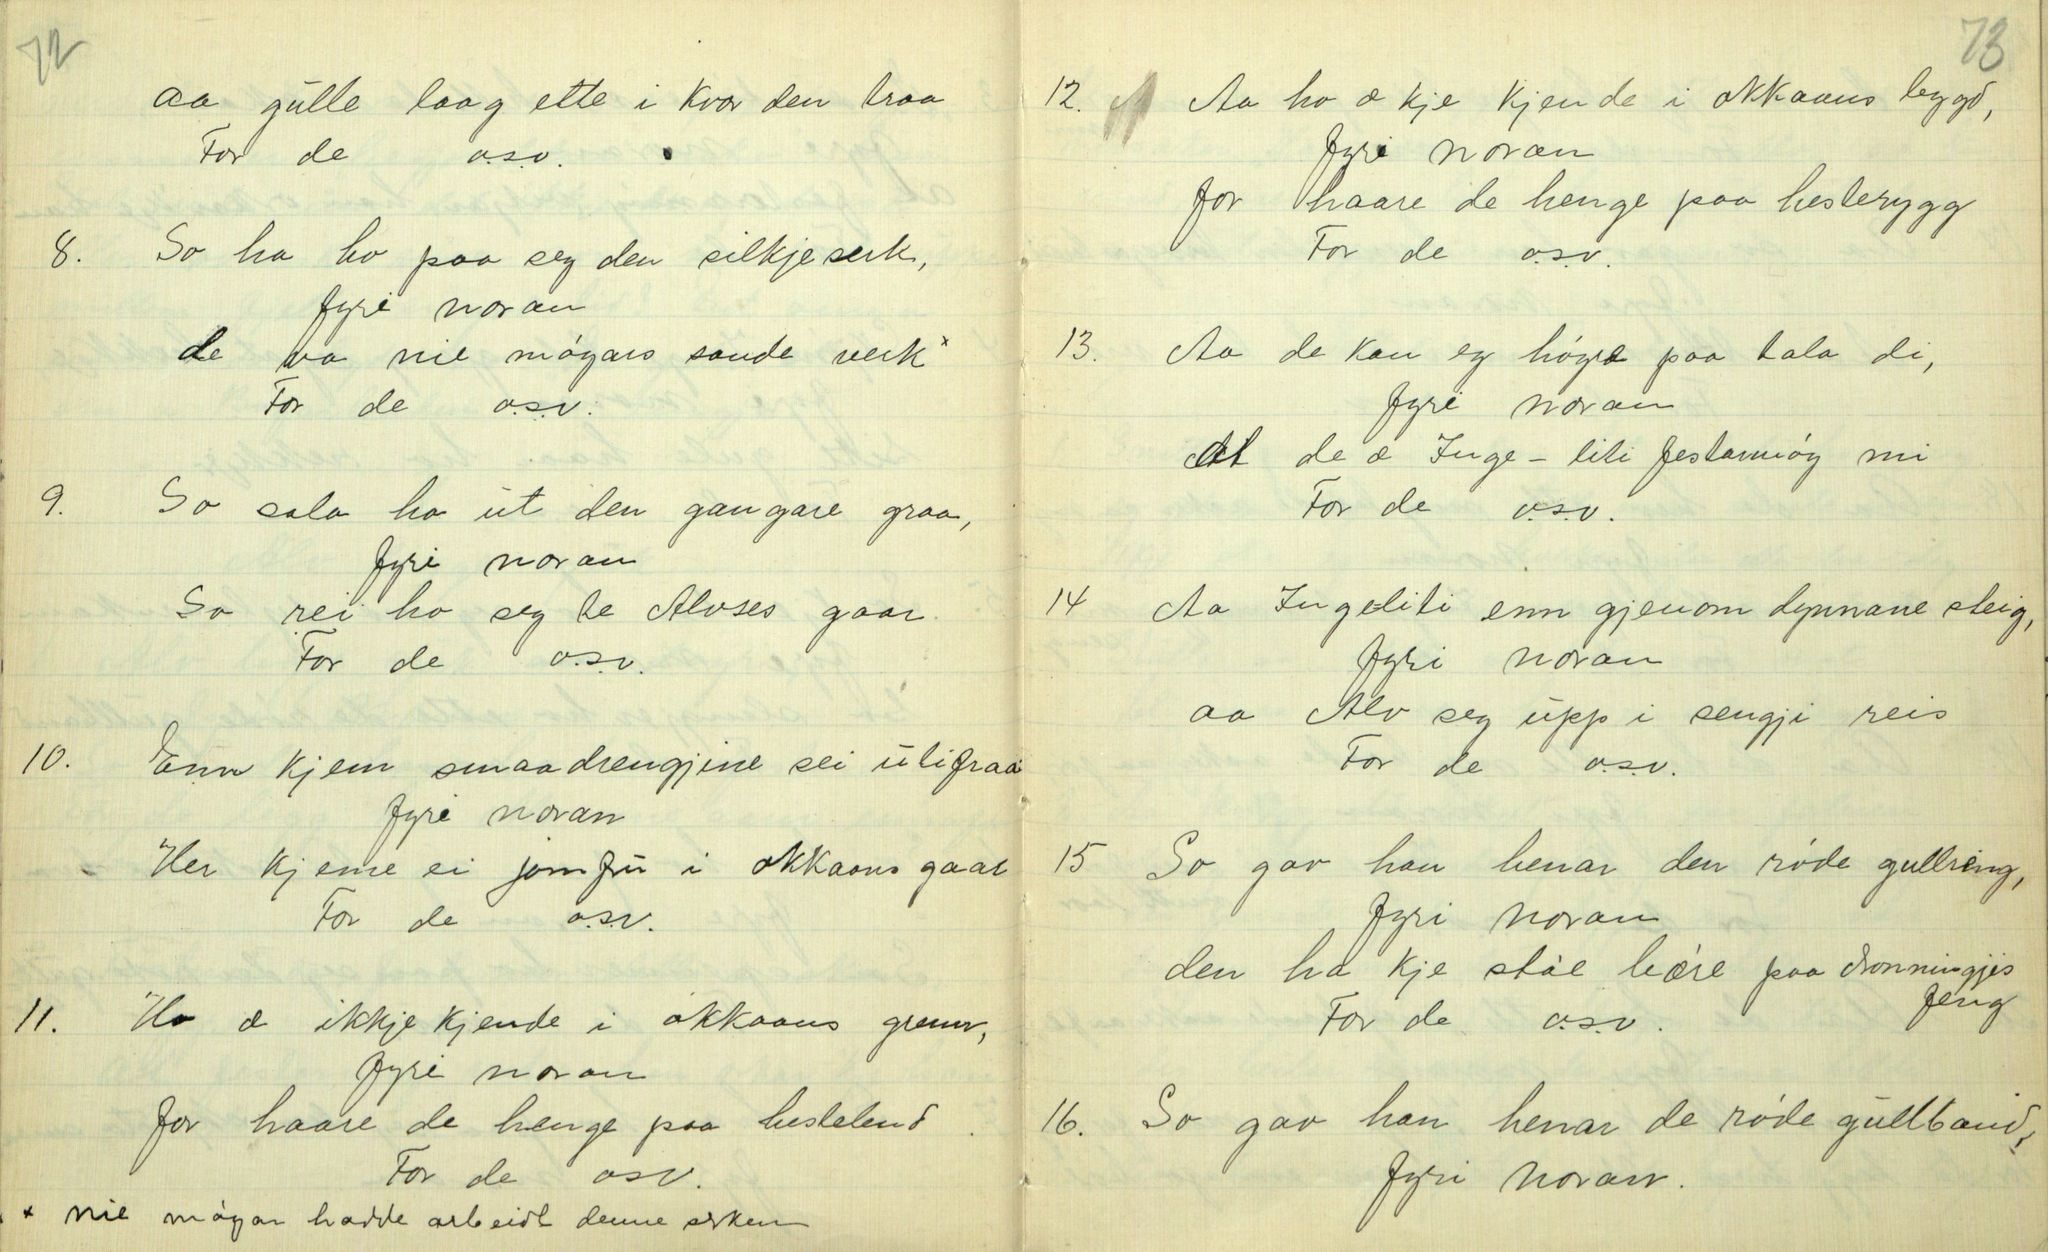 72
aa gulle laag ette i kvær den traa
For de o.s.v.
8. So ha ho paa seg den silkjeserk,
fyri noran
de va nie móyars sande verk x
For de o.s.v.
9. So sala ho út den gangare graa,
fyri noran
So rei ho seg te Alvses gaar.
For de o.s.v.
10. Enn kjem smaadrengjine sei útifraa
fyri noran
Her kjeme ei jomfrú i okkaans gaar
For de o.s.v.
11. Ho æ ikkje kjende i okkaans grenn,
fyri noran
for haare de henge paa hestelend.
For de osv.
x nie móyar hadde arbeidt denne serken
73
12. Aa ho æ kje kjende i okkaans bygd,
fyri noran
for haare de henge paa hesterygg
For de o.s.v.
13. Aa de kan eg hógre paa tala di,
fyri noran
At de æ Inge-liti festarmóy mi
For de o.s.v.
14 Aa Ingeliti enn gjenom dynnane steig,
fyri noran
aa Alv seg úpp i sengji reis
For de o.s.v.
15 So gav han henar den róde gullring,
fyri noran
den ha kje stóe bére paa dronningjis
feng
For de o.s.v.
16. So gav han henar de róde gúllband,
fyri noran.